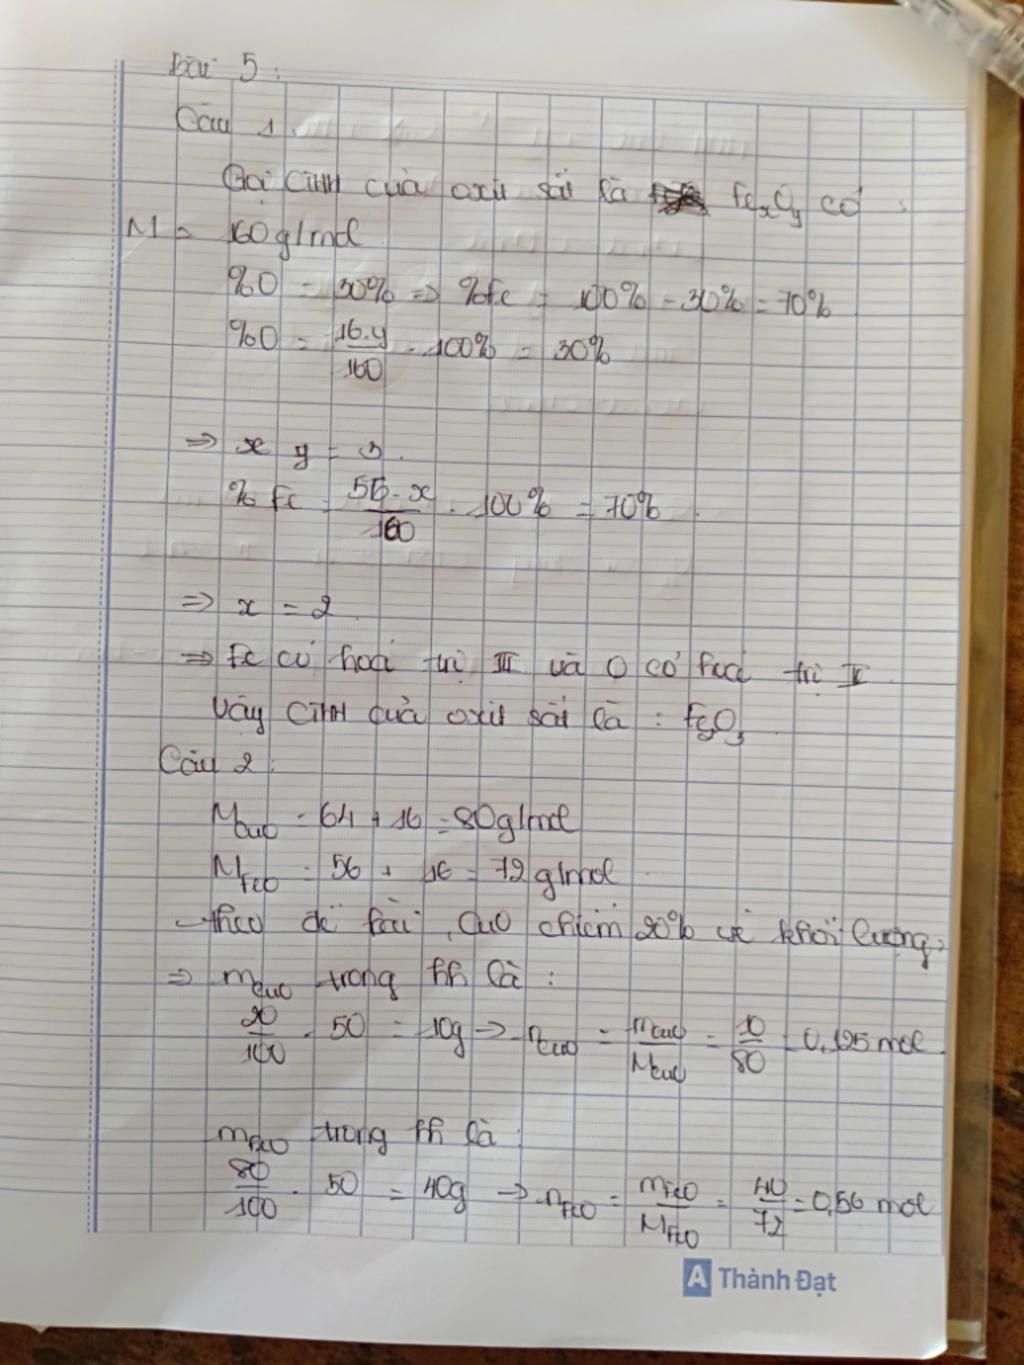 Bài 5:
Câu 1.
Gọi CTHH của oxit sắt là FexOy có
M = 160g/mol
%O = 30% => %Fe = 100% - 30% = 70%
%O = 16.y/160 . 100% = 30%
=> x y = 3.
% Fe = 56.x/160 . 100% = 70%
=> x = 2
=> Fe có hoá trị III và O có hoá trị II
Vậy CTHH của oxit sắt là : Fe2O3
Câu 2:
MCuO = 64 + 16 = 80g/mol
MFeO = 56 + 16 = 72g/mol
-theo đề bài, CuO chiếm 20% về khối lượng,
=> mCuO trong hh là :
20/100 . 50 = 10g -> nCuO = mCuO/MCuO = 10/80 = 0,125 mol
mFeO trong hh là
80/100 . 50 = 40g -> nFeO = mFeO/MFeO = 40/72 = 0,56 mol
A Thành Đạt